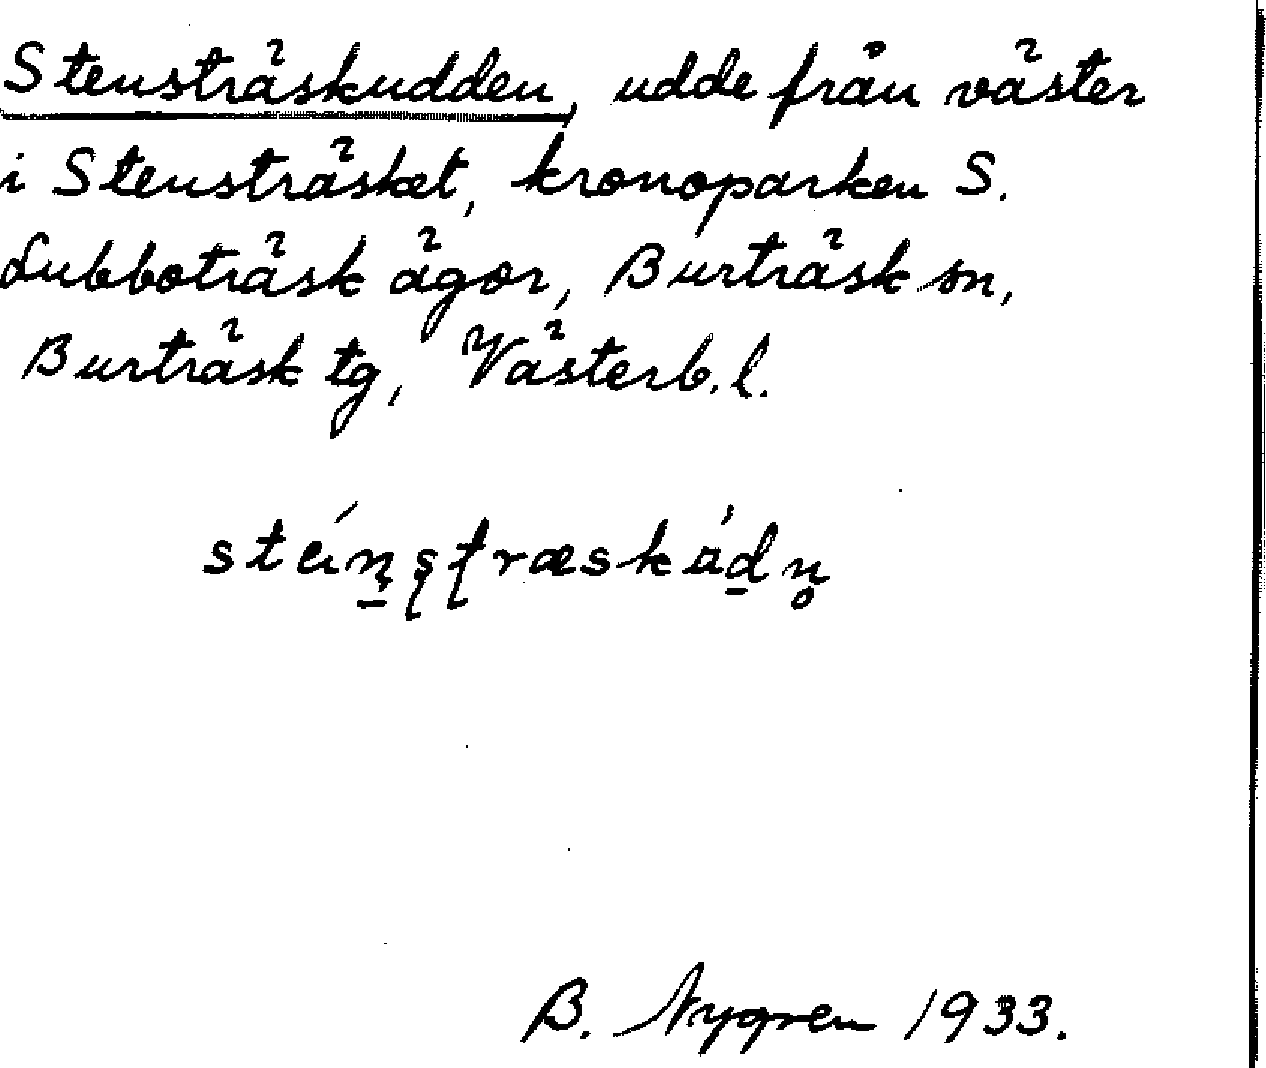 Stensträskudden, udde från väster
i Stensträsket, kronoparken S.
Lubboträsk ägor, Burträsk sn,
Burträsk tg, Västerb. l.
B. Nygren 1933.